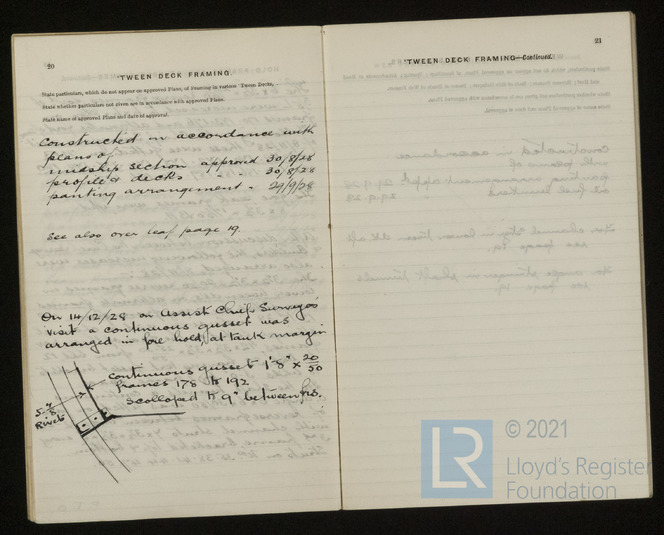 20
'TWEEN DECK FRAMING.
State particulars, which do not appear on approved Plans, of Framing in various 'Tween Decks,
State whether particulars not given are in accordance with approved Plans.
State name of approved Plans and date of approval.
Constructed in accordance with
plans of
midship section approved 30/8/28
profile & decks " " 30/8/28
panting arrangement " 29/9/28
See also over leaf page 19.
On 14/12/28 on Assist Chief Surveyors
visit a continuous gusset was
arranged in fore hold, at tank margin
continuous gusset 1'8" x 20/50
frames 178 to 192
scolloped to 9" between frs.
Rivets
21
'TWEEN DECK FRAMING—Continued.
LR
© 2021
Lloyd's Register
Foundation